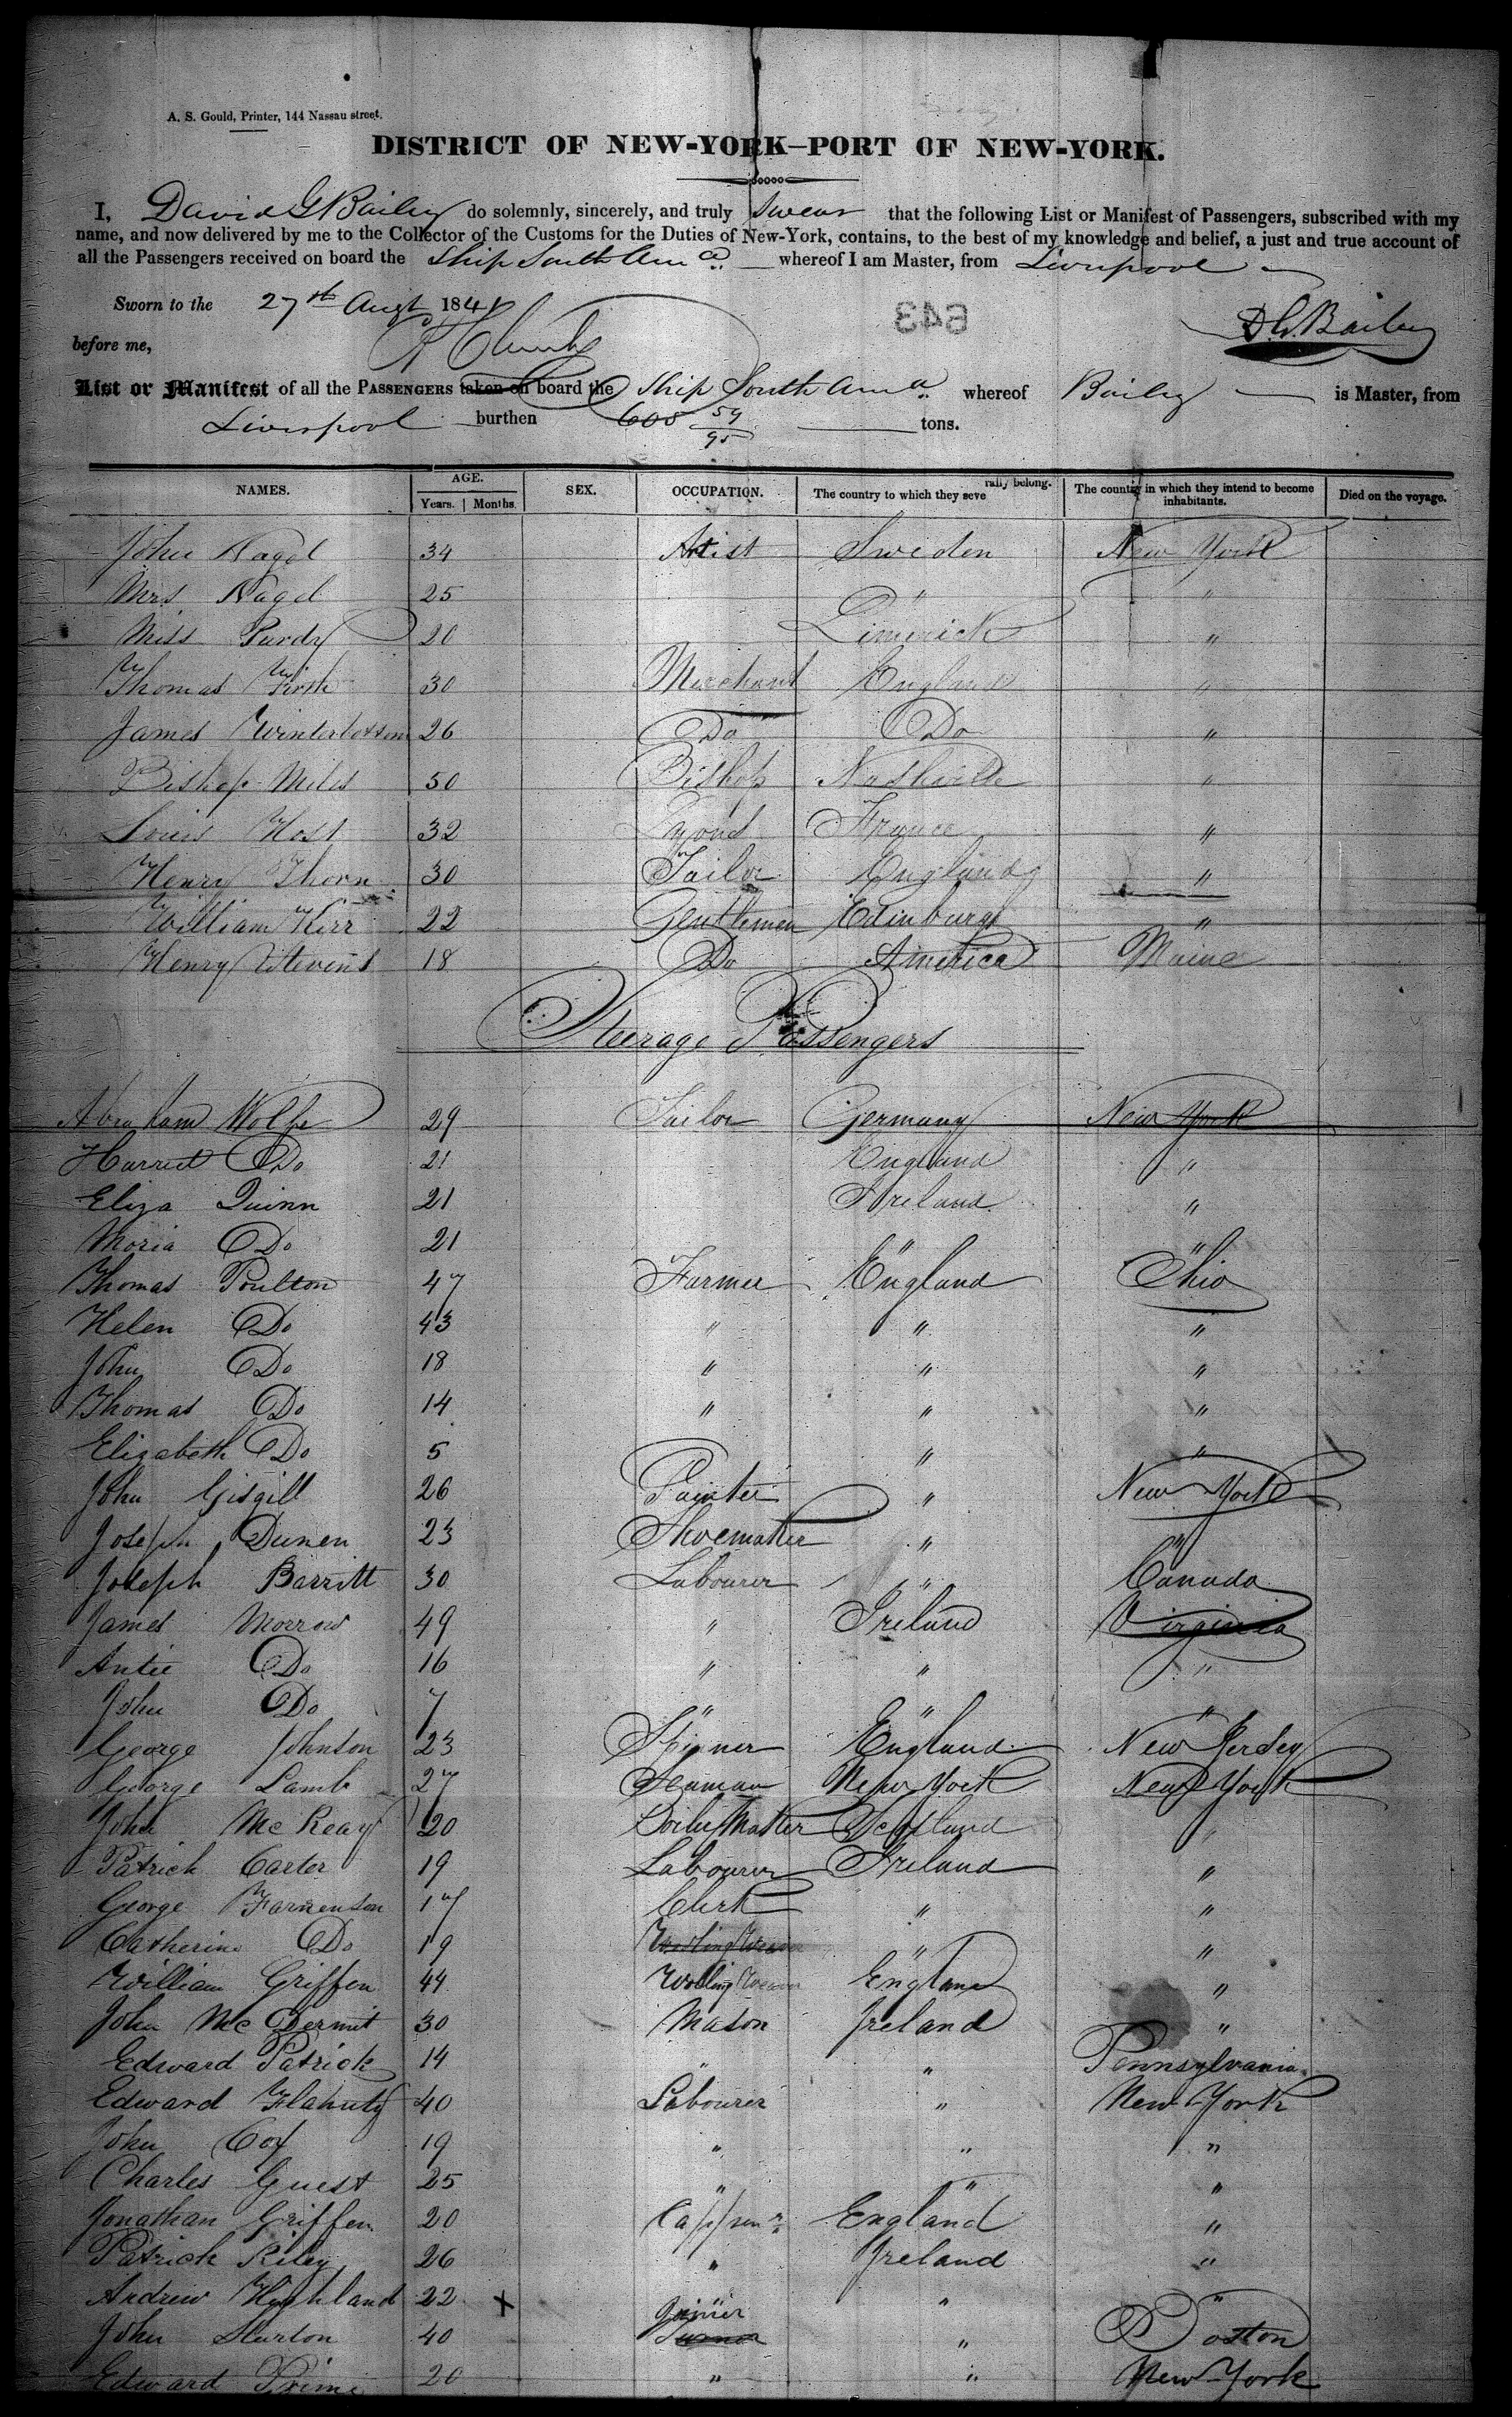 A. S. Gould, Printer, 144 Nassau street.
DISTRICT OF NEW-YORK—PORT OF NEW-YORK.
I, David G Bailey do solemnly, sincerely, and truly Swear that the following List or Manifest of Passengers, subscribed with my
name, and now delivered by me to the Collector of the Customs for the Duties of New-York, contains, to the best of my knowledge and belief, a just and true account of
all the Passengers received on board the Ship South Am ca whereof I am Master, from Liverpool
Sworn to the 27th Augt 1841
before me,
D. G. Bailey
643
List or Manifest of all the PASSENGERS taken on board the Ship South Am a whereof Bailey is Master, from
Liverpool burthen 605 59/95 tons.
NAMES. AGE. Years. Months. SEX. OCCUPATION. The country to which they severally belong. The country in which they intend to become inhabitants. Died on the voyage.
John Nagel 34 Artist Sweden New York
Mrs Nagel 25 " "
Miss Purdy 20 Limerick "
Thomas Firth 30 Merchant England "
James Winterbottom 26 Do Do "
Bishop Miles 50 Bishop Nashville "
Louis Host 32 France "
Henry Thorn 30 Tailor England "
William Kirr 22 Gentlemen Edinburgh "
Henry Stevens 18 Do America Maine
Steerage Passengers
Abraham Wolfe 29 Tailor Germany New York
Harriet Do 21 England "
Eliza Quinn 21 Ireland "
Moria Do 21 " "
Thomas Poulton 47 Farmer England Ohio
Helen Do 43 " " "
John Do 18 " " "
Thomas Do 14 " " "
Elizabeth Do 5 " "
John Gisgill 26 Painter " New York
Joseph Dunen 23 Shoemaker " "
Joseph Barritt 30 Labourer " Canada
James Morrow 49 " Ireland Virginia
Antie Do 16 " " "
John Do 7 " " "
George Johnson 23 Spinner England New Jersey
George Lamb 27 Seaman New York New York
John McKeay 20 Boiler Maker Scotland "
Patrick Carter 19 Labourer Ireland "
George Farrenson 17 Clerk " "
Catherine Do 19 Wooling Weaver " "
William Griffen 44 Wooling Weaver England "
John McDermit 30 Mason Ireland "
Edward Patrick 14 " " Pennsylvania
Edward Flahuty 40 Labourer " New York
John Coy 19 " " "
Charles Guest 25 " " "
Jonathan Griffen 20 England "
Patrick Riley 26 " Ireland "
Andrew Highland 22 X " " "
John Sturton 40 Joinier Turner " Boston
Edward Prime 20 " " New York